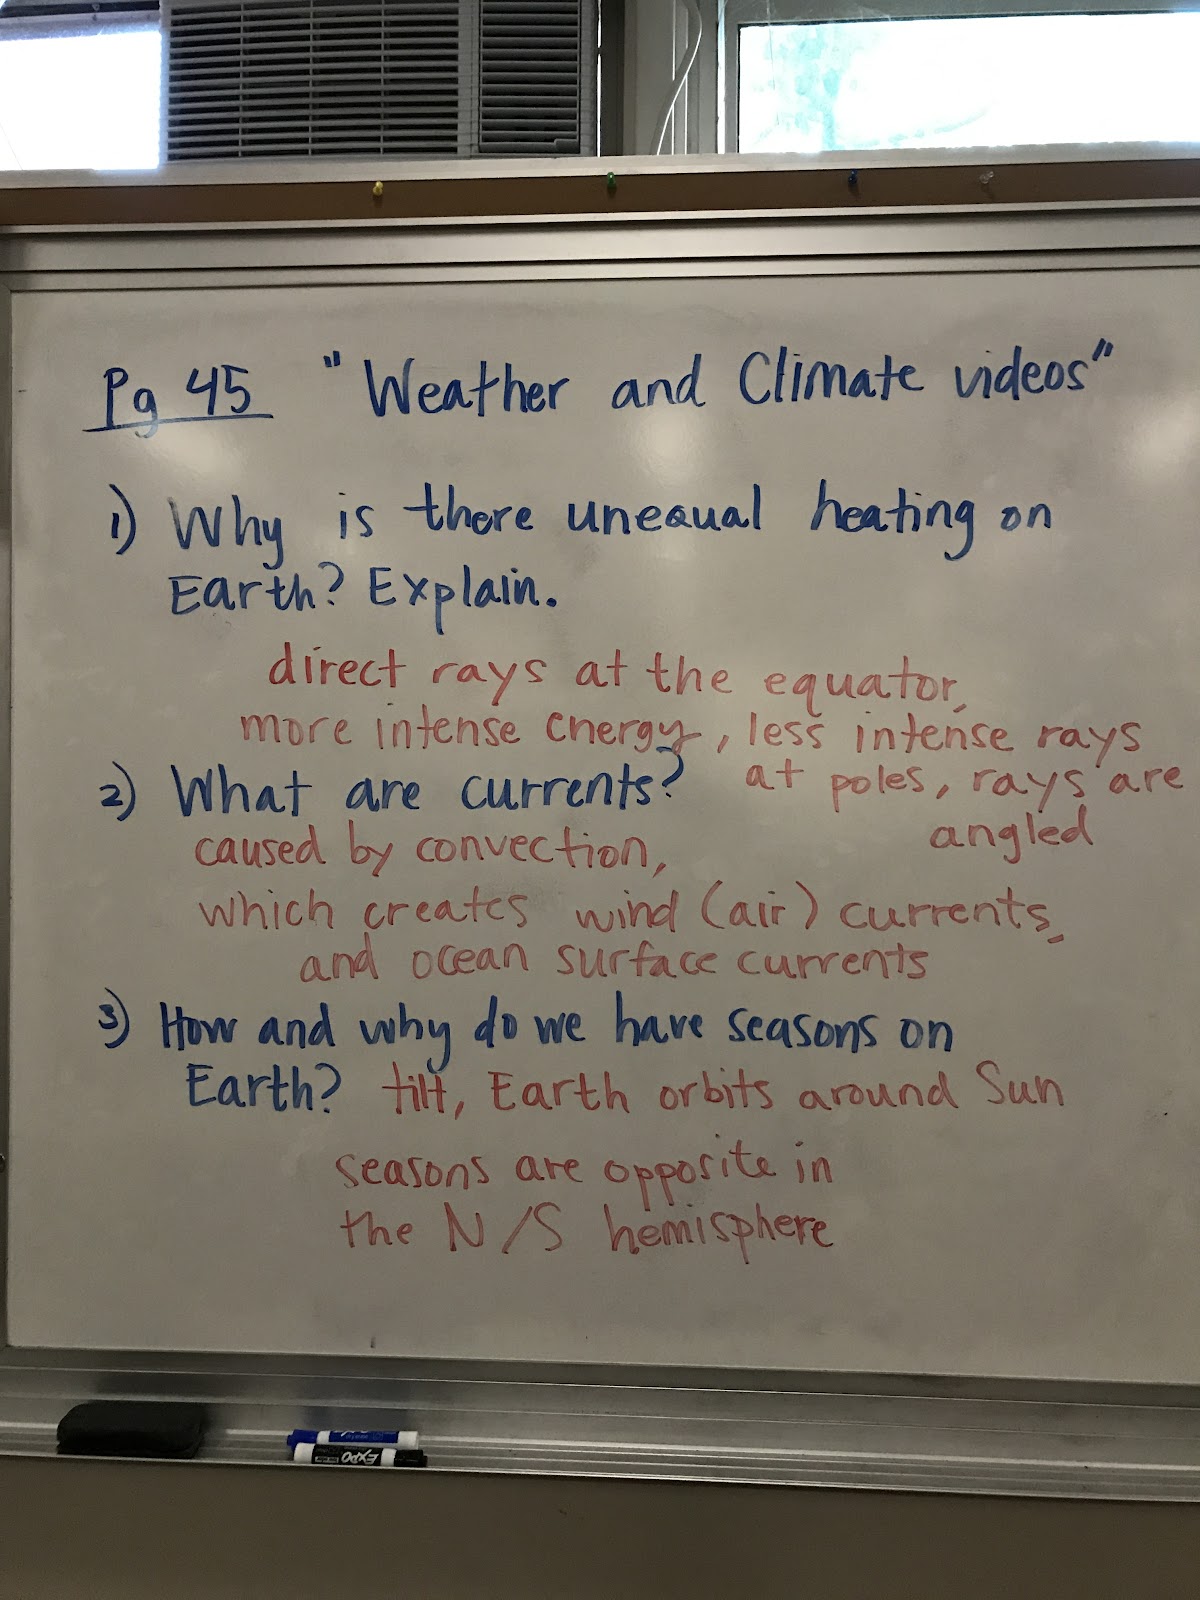 Pg 45 "Weather and Climate videos"
1) Why is there unequal heating on
Earth? Explain.
direct rays at the equator,
more intense energy, less intense rays
at poles, rays are
angled
2) What are currents?
caused by convection,
which creates wind (air) currents,
and ocean surface currents
3) How and why do we have seasons on
Earth? tilt, Earth orbits around Sun
seasons are opposite in
the N/S hemisphere
EXPO